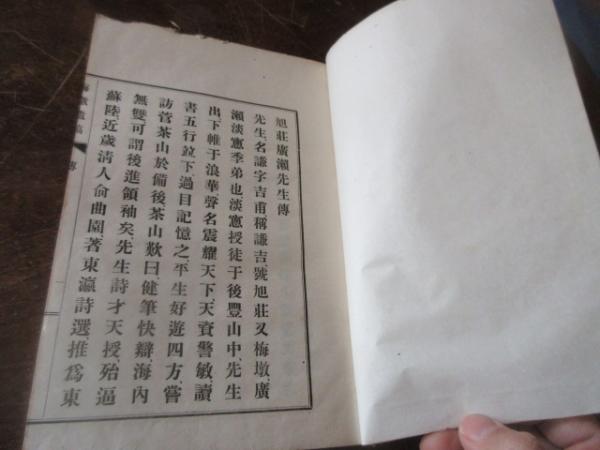 旭莊廣瀨先生傳
先生、名謙字吉甫稱謙吉號旭莊又梅墩、廣
瀨淡窻季弟也、淡窻授徒于後豐山中、先生
出下帷于浪華、聲名震耀天下、天資警敏、讀
書五行竝下過目記憶之、平生好遊四方、嘗
訪菅茶山於備後茶山歎曰、健筆快辯、海內
無雙、可謂後進領袖矣、先生詩才天授、殆逼
蘇陸近歲淸人兪曲園、著東瀛詩選、推爲東
梅墩遺稿 傳